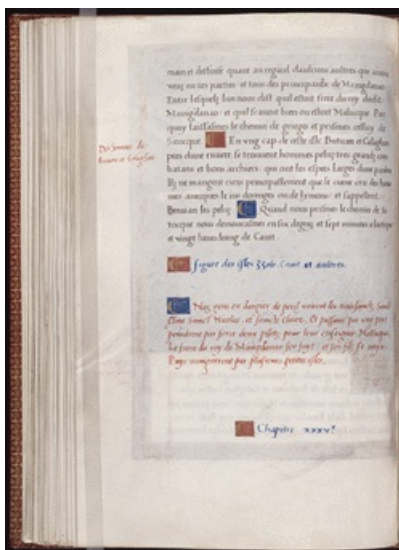 Des hommes de
Benaian et Calaghan
main et dessus quant au regard daulcuns aultres que nous
en ces parties et tous des principaulx de Maingdanao
Entre lesquelz lun nous dist quil estoit frere du roy dudit
Maingdanao et quil scavoit bien ou estoit Malucque Par
quoy laissasmes le chemin de et prismes celluy de
En ung cap de ceste isle Butuan et Calaghan
pres dune riviere se trouvent hommes pelus tres grandz com
batans et bons archiers qui ont les espees larges dune paulme
Ilz ne mangent sinon principallement que le cueur cru des hom
mes avecques le jus dorenges ou de lymons et sappellent
Benaian les pelus Quand nous prismes le chemin de la
nous demourasmes en six degrez et sept minutes a lartique
et vingt lieux loing de Cauit
Figure des isles Cauit et aultres.
Nos gens en danger de peril voirent les troys sainctz, Sainct
Elme Sainct Nicolas, et saincte Claire. Et passans par une part
prindrent par force deux pilotz pour leur enseigner Malucque.
Le frere du roy de Maingdanao sen fuyt, et son filz se noya.
Puys navigerent par plusieurs petites isles.
Chapitre xxxv.